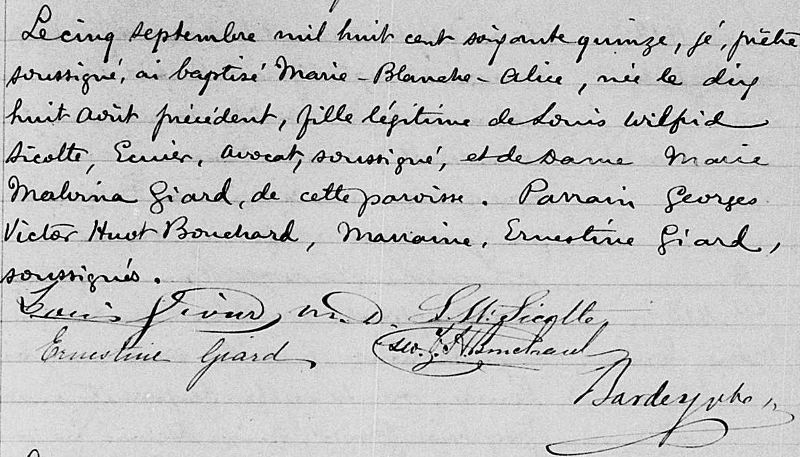 Le cinq septembre mil huit cent soixante quinze, jé, prêtre
soussigné, ai baptisé Marie-Blanche-Alice, née le dix
huit août précédent, fille légitime de Louis Wilfrid
Sicotte, Ecuier, avocat, soussigné, et de Dame Marie
Malvina Giard, de cette paroisse. Parrain Georges
Victor Huot Bouchard, Marraine, Ernestine Giard,
soussignés.
Louis Giard, M.D. L. W. Sicotte
Ernestine Giard Geo. V. H Bouchard
Bardey ptre